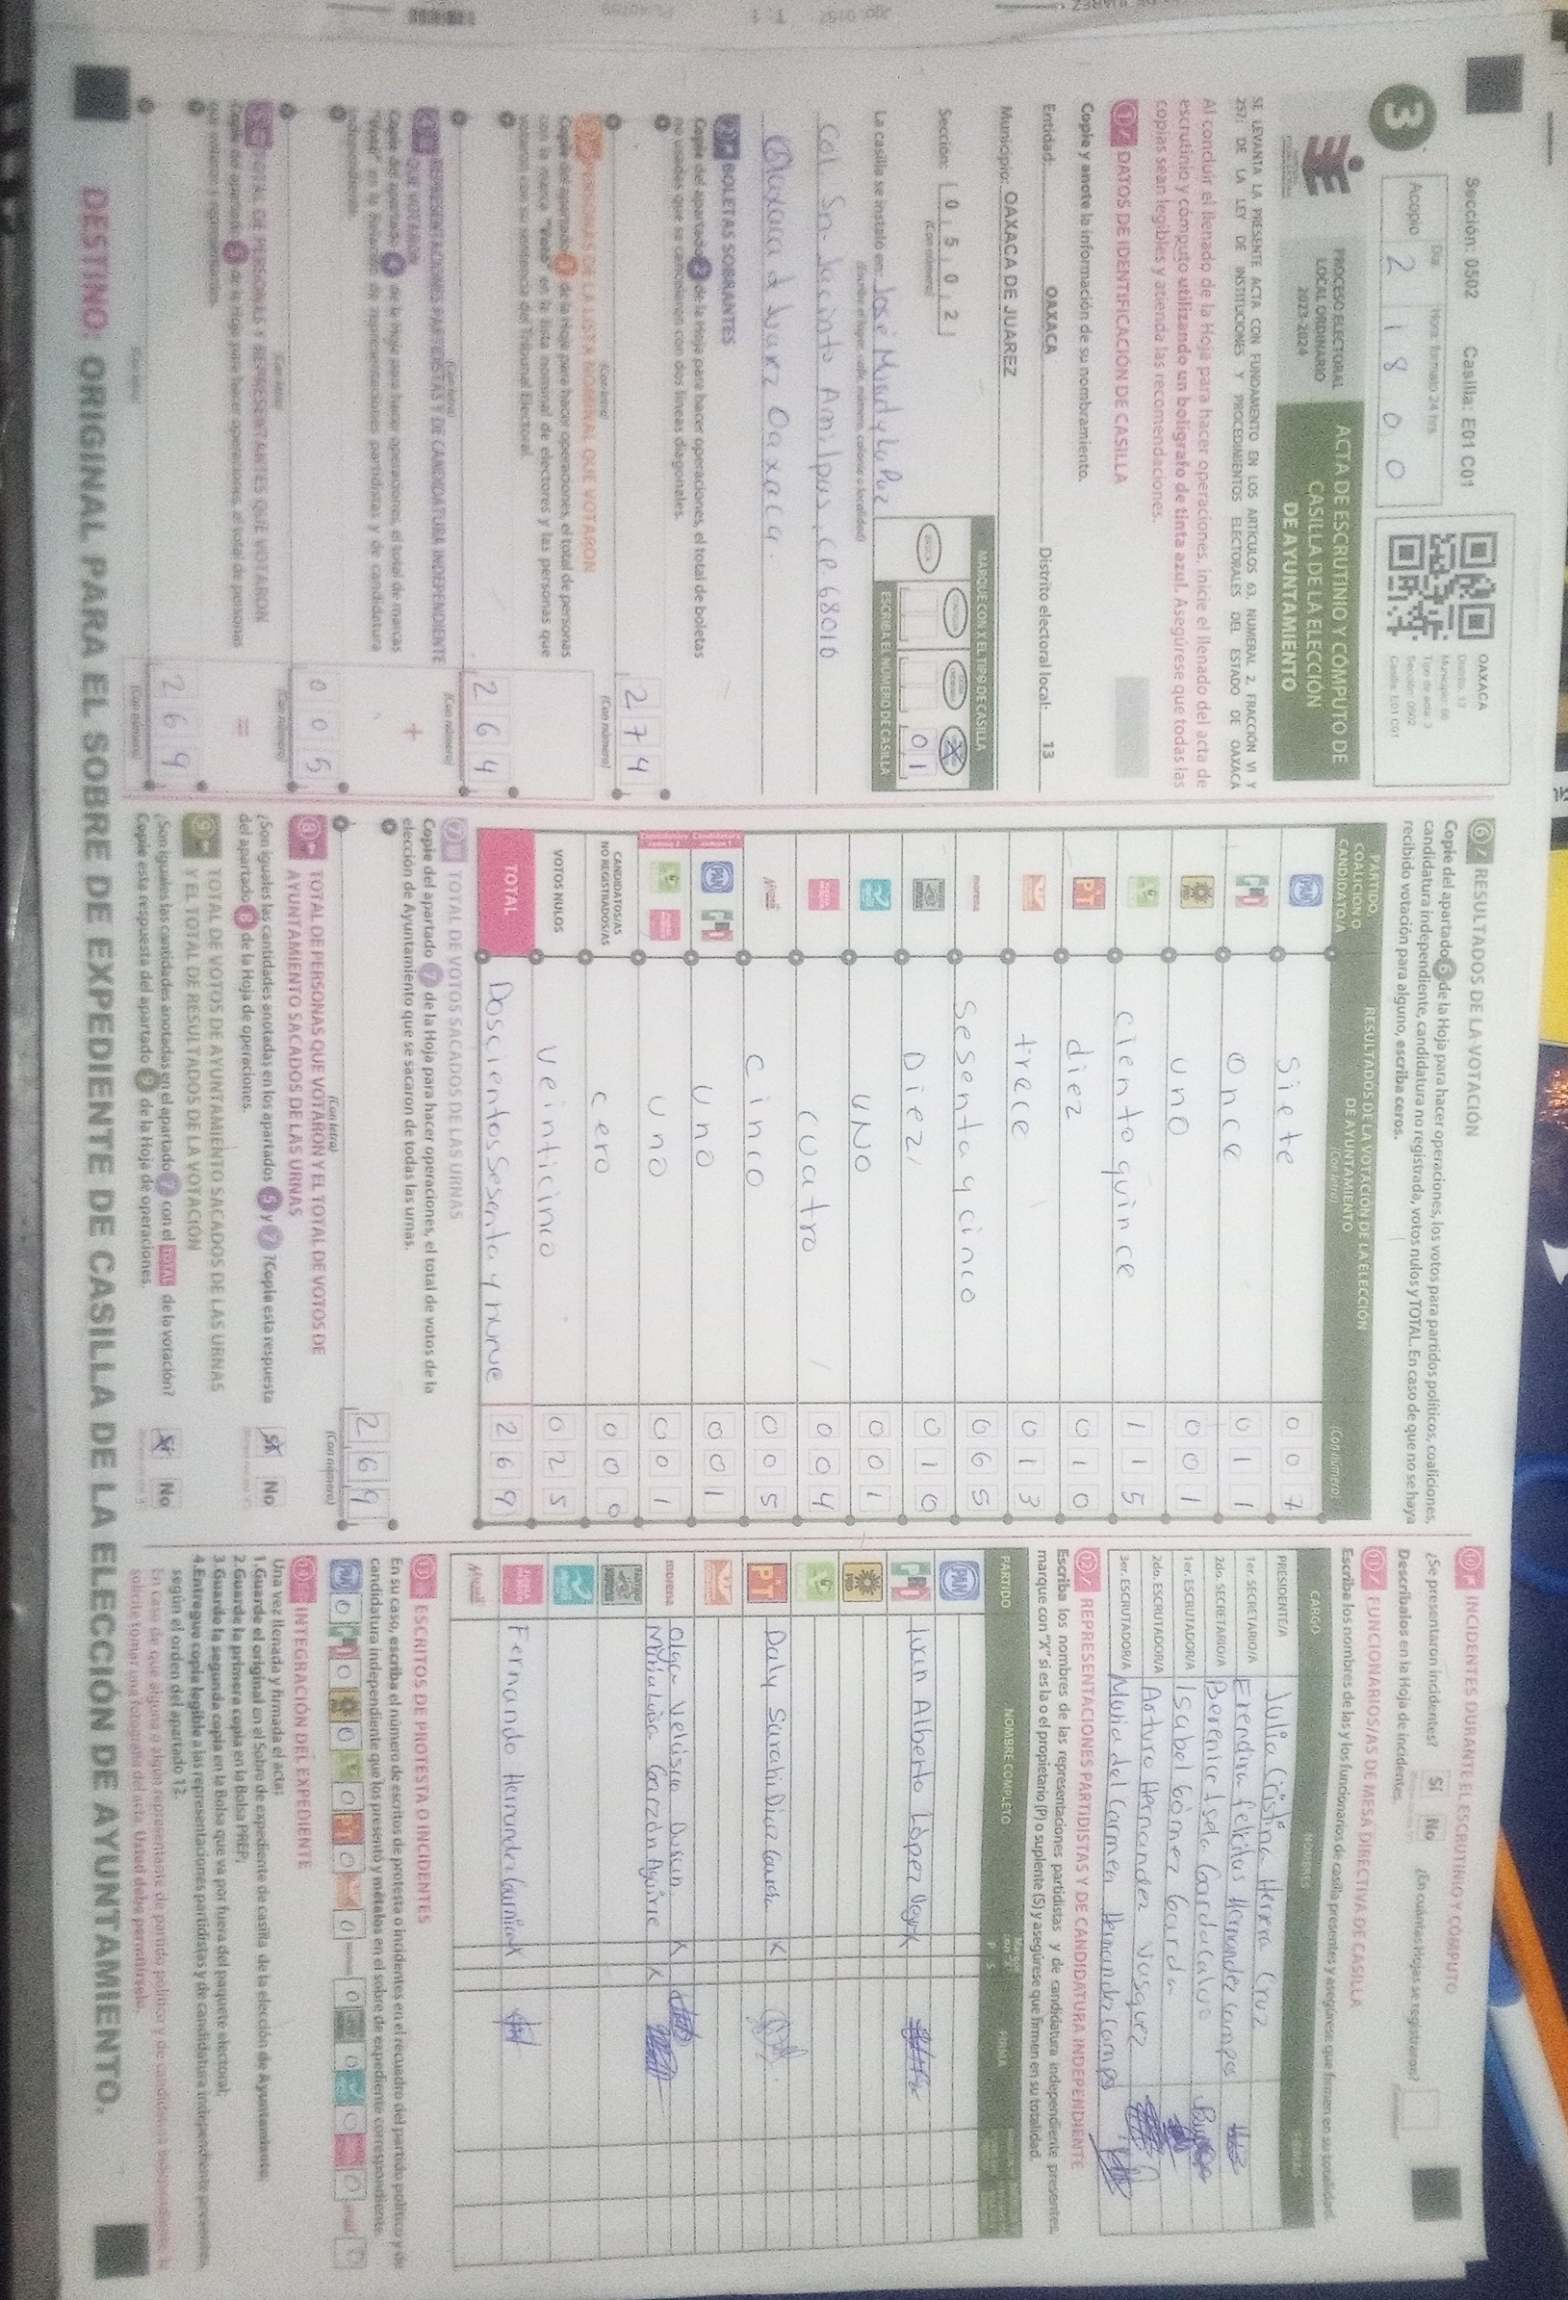 Sección: 0502 Casilla: E01 C01
3
Día Hora: formato 24 hrs.
Acopio 2 1 8 0 0
OAXACA
Distrito: 13
Municipio: 66
Tipo de acta: 3
Sección: 0502
Casilla: E01 C01
PROCESO ELECTORAL
LOCAL ORDINARIO
2023-2024
ACTA DE ESCRUTINIO Y CÓMPUTO DE
CASILLA DE LA ELECCIÓN
DE AYUNTAMIENTO
SE LEVANTA LA PRESENTE ACTA CON FUNDAMENTO EN LOS ARTÍCULOS 63, NUMERAL 2, FRACCIÓN VI Y
257; DE LA LEY DE INSTITUCIONES Y PROCEDIMIENTOS ELECTORALES DEL ESTADO DE OAXACA
Al concluir el llenado de la Hoja para hacer operaciones, inicie el llenado del acta de
escrutinio y cómputo utilizando un bolígrafo de tinta azul. Asegúrese que todas las
copias sean legibles y atienda las recomendaciones.
1 DATOS DE IDENTIFICACIÓN DE CASILLA
Copie y anote la información de su nombramiento.
Entidad: OAXACA Distrito electoral local: 13
Municipio: OAXACA DE JUAREZ
Sección: 0 5 0 2
(Con número)
MARQUE CON X EL TIPO DE CASILLA
ESCRIBA EL NÚMERO DE CASILLA
0 1
La casilla se instaló en: José Murat y la Paz
(Escriba el lugar, calle, número, colonia o localidad)
Col. Sn. Jacinto Amilpas, C.P. 68010
Oaxaca d Juarez Oaxaca.
2 BOLETAS SOBRANTES
Copie del apartado 2 de la Hoja para hacer operaciones, el total de boletas
no usadas que se cancelaron con dos líneas diagonales.
2 7 4
(Con letra) (Con número)
3 PERSONAS DE LA LISTA NOMINAL QUE VOTARON
Copie del apartado 3 de la Hoja para hacer operaciones, el total de personas
con la marca "Votó" en la lista nominal de electores y las personas que
votaron con su sentencia del Tribunal Electoral.
2 6 4
(Con letra) (Con número)
4 REPRESENTACIONES PARTIDISTAS Y DE CANDIDATURA INDEPENDIENTE
QUE VOTARON
Copie del apartado 4 de la Hoja para hacer operaciones, el total de marcas
"Votó" en la Relación de representaciones partidistas y de candidatura
independiente.
+
0 0 5
(Con letra) (Con número)
5 TOTAL DE PERSONAS Y REPRESENTANTES QUE VOTARON
Copie del apartado 5 de la Hoja para hacer operaciones, el total de personas
que votaron y representantes.
=
2 6 9
(Con letra) (Con número)
6 RESULTADOS DE LA VOTACIÓN
Copie del apartado 6 de la Hoja para hacer operaciones, los votos para partidos políticos, coaliciones,
candidatura independiente, candidatura no registrada, votos nulos y TOTAL. En caso de que no se haya
recibido votación para alguno, escriba ceros.
PARTIDO,
COALICIÓN O
CANDIDATO/A
RESULTADOS DE LA VOTACIÓN DE LA ELECCIÓN
DE AYUNTAMIENTO
(Con letra) (Con número)
PAN Siete 0 0 7
PRI Once 0 1 1
PRD uno 0 0 1
Ciento quince 1 1 5
PT diez 0 1 0
trece 0 1 3
morena Sesenta y cinco 0 6 5
Diez 0 1 0
UNO 0 0 1
cuatro 0 0 4
cinco 0 0 5
PAN PRI Uno 0 0 1
Uno 0 0 1
CANDIDATOS/AS
NO REGISTRADOS/AS cero 0 0 0
VOTOS NULOS Veinticinco 0 2 5
TOTAL Doscientos Sesenta y nueve 2 6 9
7 TOTAL DE VOTOS SACADOS DE LAS URNAS
Copie del apartado 7 de la Hoja para hacer operaciones, el total de votos de la
elección de Ayuntamiento que se sacaron de todas las urnas.
2 6 9
(Con letra) (Con número)
8 TOTAL DE PERSONAS QUE VOTARON Y EL TOTAL DE VOTOS DE
AYUNTAMIENTO SACADOS DE LAS URNAS
¿Son iguales las cantidades anotadas en los apartados 5 y 7 ? Copie esta respuesta
del apartado 8 de la Hoja de operaciones.
Sí No
9 TOTAL DE VOTOS DE AYUNTAMIENTO SACADOS DE LAS URNAS
Y EL TOTAL DE RESULTADOS DE LA VOTACIÓN
¿Son iguales las cantidades anotadas en el apartado 7 con el TOTAL de la votación?
Copie esta respuesta del apartado 9 de la Hoja de operaciones.
Sí No
10 INCIDENTES DURANTE EL ESCRUTINIO Y CÓMPUTO
¿Se presentaron incidentes? Sí No ¿En cuántas Hojas se registraron?
Descríbalos en la Hoja de incidentes.
11 FUNCIONARIOS/AS DE MESA DIRECTIVA DE CASILLA
Escriba los nombres de las y los funcionarios de casilla presentes y asegúrese que firmen en su totalidad.
CARGO NOMBRES FIRMAS
PRESIDENTE/A Julia Cristina Herrera Cruz
1er. SECRETARIO/A Erendira felicitas Hernandez Campos
2do. SECRETARIO/A Berenice Isela Garcia Calvo
1er. ESCRUTADOR/A Isabel Gómez García
2do. ESCRUTADOR/A Arturo Hernandez Vasquez
3er. ESCRUTADOR/A Maria del Carmen Hernandez Campos
12 REPRESENTACIONES PARTIDISTAS Y DE CANDIDATURA INDEPENDIENTE
Escriba los nombres de las representaciones partidistas y de candidatura independiente presentes,
marque con "X" si es la o el propietario (P) o suplente (S) y asegúrese que firmen en su totalidad.
PARTIDO NOMBRE COMPLETO P S FIRMA
PAN
PRI Ivan Alberto López X
PRD
PT Daly Sarahi Diaz X
morena Olga Velasco X
Maria Luisa Garzón Aguirre X
Fernando Hernandez X
13 ESCRITOS DE PROTESTA O INCIDENTES
En su caso, escriba el número de escritos de protesta o incidentes en el recuadro del partido político y de
candidatura independiente que los presentó y métalos en el sobre de expediente correspondiente.
PAN 0 PRI 0 0 0 PT 0 0 0 0 0 0
14 INTEGRACIÓN DEL EXPEDIENTE
Una vez llenada y firmada el acta:
1.Guarde el original en el Sobre de expediente de casilla de la elección de Ayuntamiento;
2.Guarde la primera copia en la Bolsa PREP;
3.Guarde la segunda copia en la Bolsa que va por fuera del paquete electoral;
4.Entregue copia legible a las representaciones partidistas y de candidatura independiente presentes,
según el orden del apartado 12.
En caso de que alguna o algún representante de partido político y de candidatura independiente, le
solicite tomar una fotografía del acta. Usted debe permitírselo.
DESTINO: ORIGINAL PARA EL SOBRE DE EXPEDIENTE DE CASILLA DE LA ELECCIÓN DE AYUNTAMIENTO.